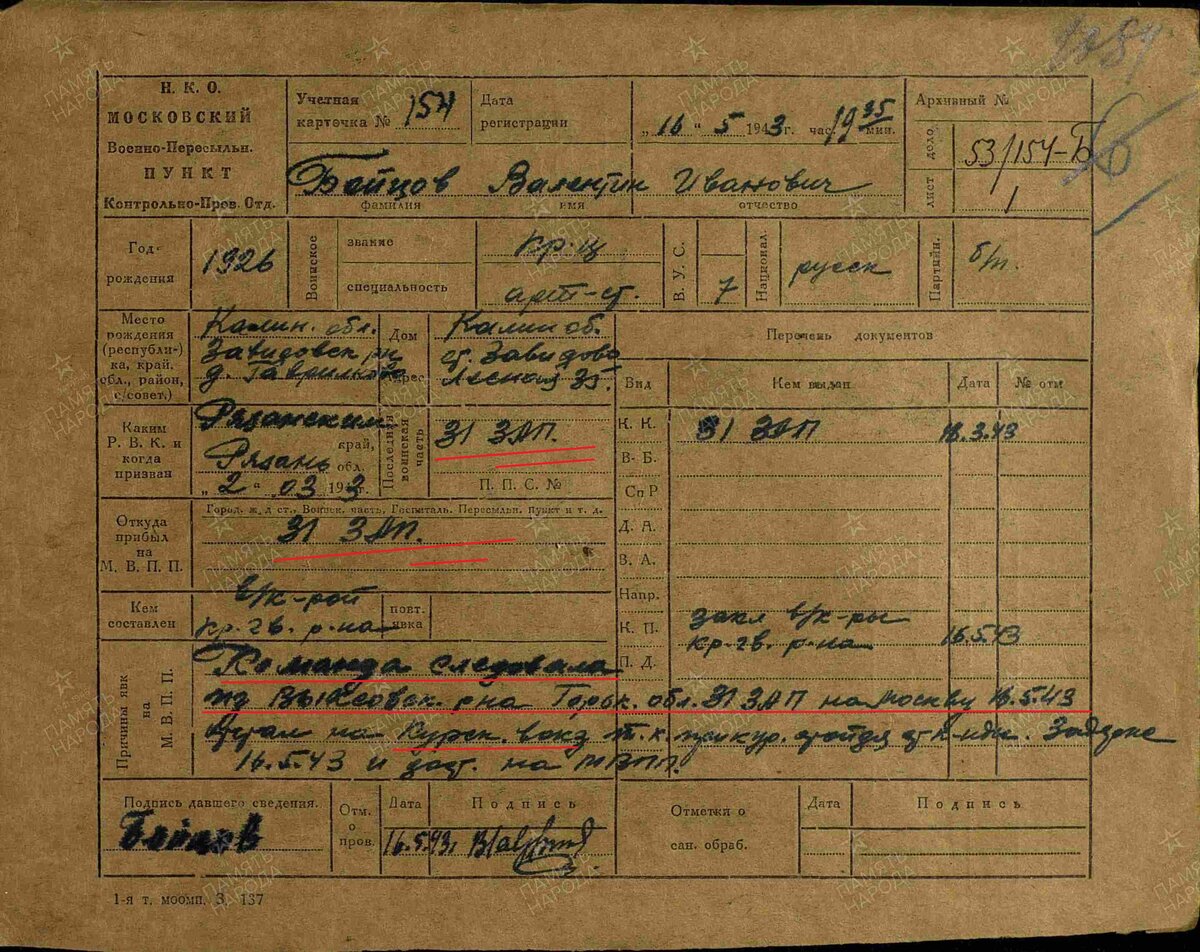 Н. К. О.
МОСКОВСКИЙ
Военно-Пересыльн.
ПУНКТ
Контрольно-Пров. Отд.
Учетная карточка № 154
Дата регистрации „16“ 5 1943г. час. 19 35 мин.
Архивный №
дело 53/154-Б
лист 1
Бойцов Валентин Иванович
фамилия имя отчество
Год рождения 1926
Воинское
звание кр-ц
специальность арт-ст.
В. У. С. 7
Национал. русск
Партийн. б/п.
Место рождения (республи-)ка, край, обл., район, с/совет.)
Калин. обл.
Завидовск рн
д. Гаврилково
Дом Адрес
Калин об.
ст. Завидово
Лесная 35.
Перечень документов
Вид Кем выдан Дата № отм
Каким Р. В. К. и когда призван
Рязанским
край,
Рязань обл.
„2“ 03 1943г.
Последняя воинская часть
31 ЗАП.
П. П. С. №
К. К. 31 ЗАП 16.3.43
В- Б.
Сп Р
Д. А.
В. А.
Напр.
К. П. закл в/к-ры
кр-гв. р-на 16.5.43
П. Д.
Откуда прибыл на М. В. П. П.
Город, ж. д ст., Воинск. часть, Госпиталь, Пересыльн. пункт и т. д.
31 ЗАП.
Кем составлен
в/к-рой
кр-гв. р-на
повт. явка
Причины явк на М. В. П. П.
Команда следовала
из Выксовск. рна Горьк. обл. 31 ЗАП на Москву 16.5.43
на Курск. вокз т. к.
16.5.43 и дост. на МВПП.
Подпись давшего сведения.
Бойцов
Отм. о пров.
Дата Подпись
16.5.43.
Отметки о сан. обраб.
Дата Подпись
1-я т. моомп. З. 137
ПАМЯТЬ НАРОДА